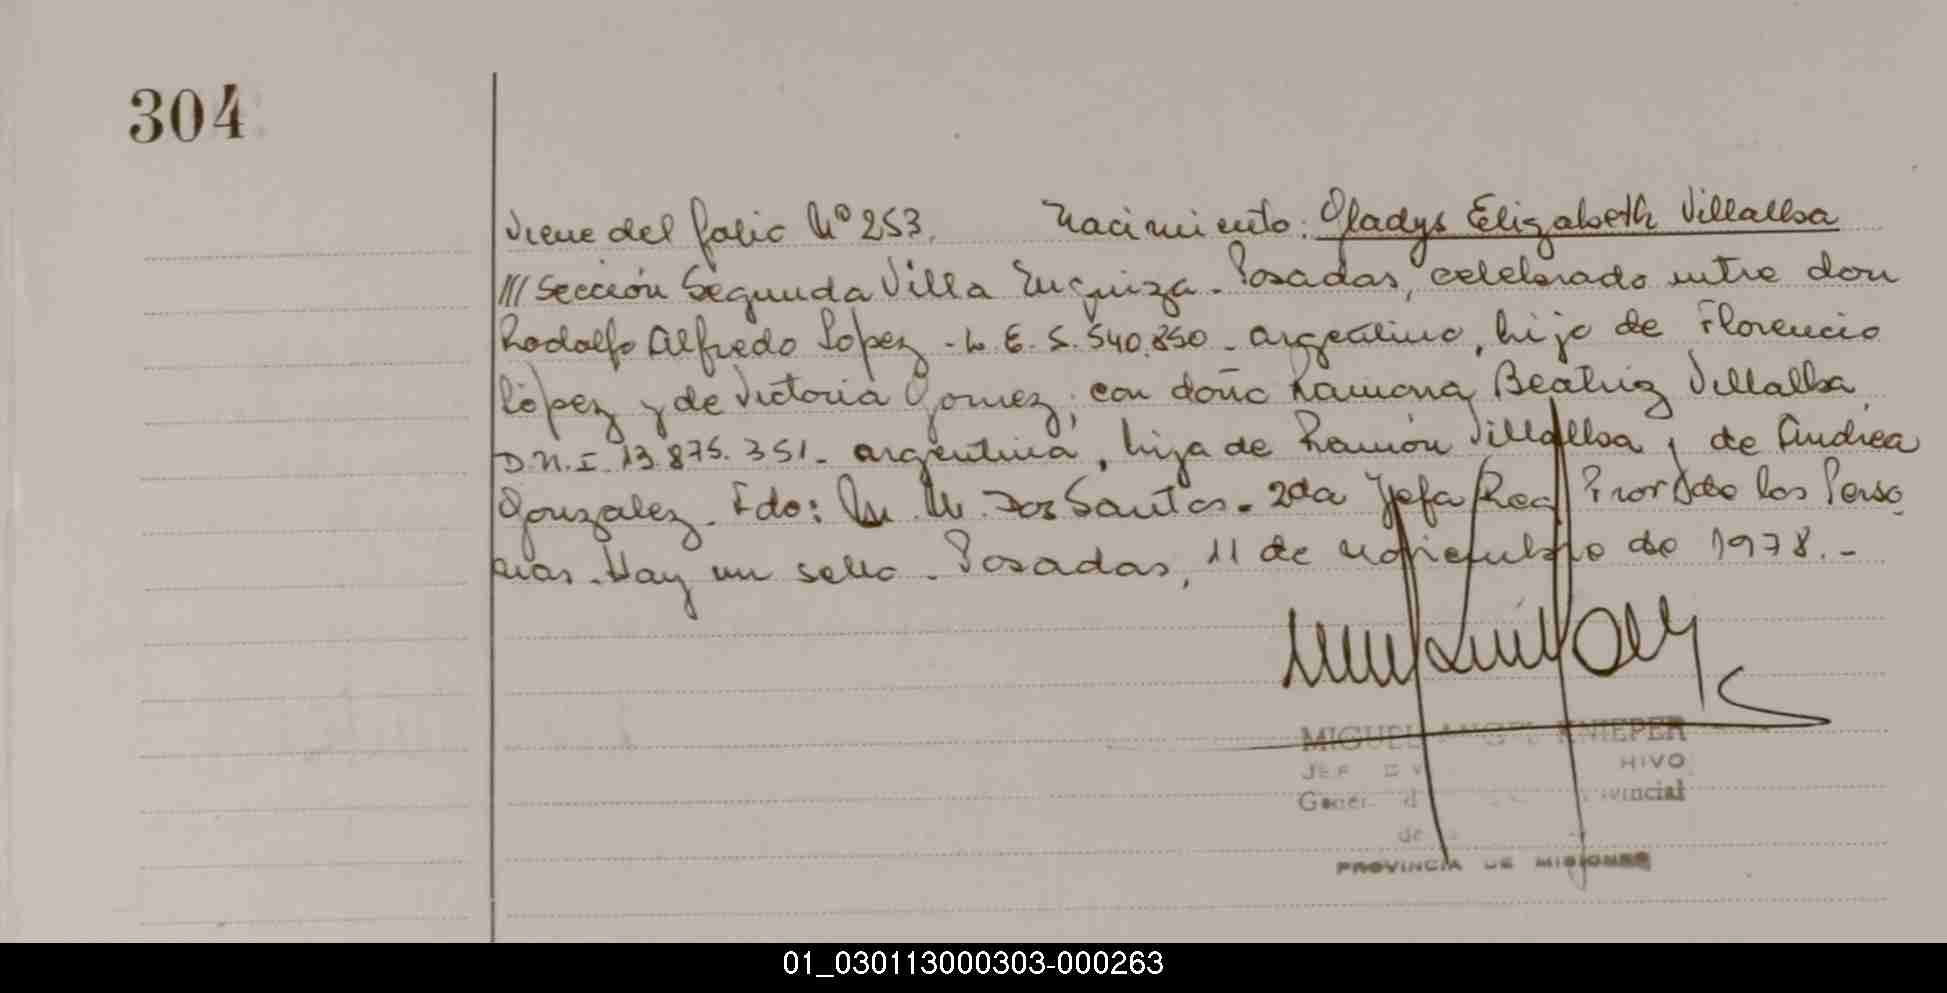 304
Viene del folio Nº 253. Nacimiento: Gladys Elizabeth Villalba
/// Sección Segunda Villa Urquiza - Posadas, celebrado entre don
Rodolfo Alfredo Lopez - L. E. 5.540.850 - argentino, hijo de Florencio
López y de Victoria Gomez; con doña Ramona Beatriz Villalba,
D.N.I. 13.875.351 - argentina, hija de Ramón Villalba y de Andrea
Gonzalez. Fdo: M. Dos Santos - 2da Jefa Reg. Prov. de las Perso
nas. Hay un sello - Posadas, 11 de noviembre de 1978.-
MIGUEL ANGEL KNIEPER
PROVINCIA DE MISIONES
01_030113000303-000263